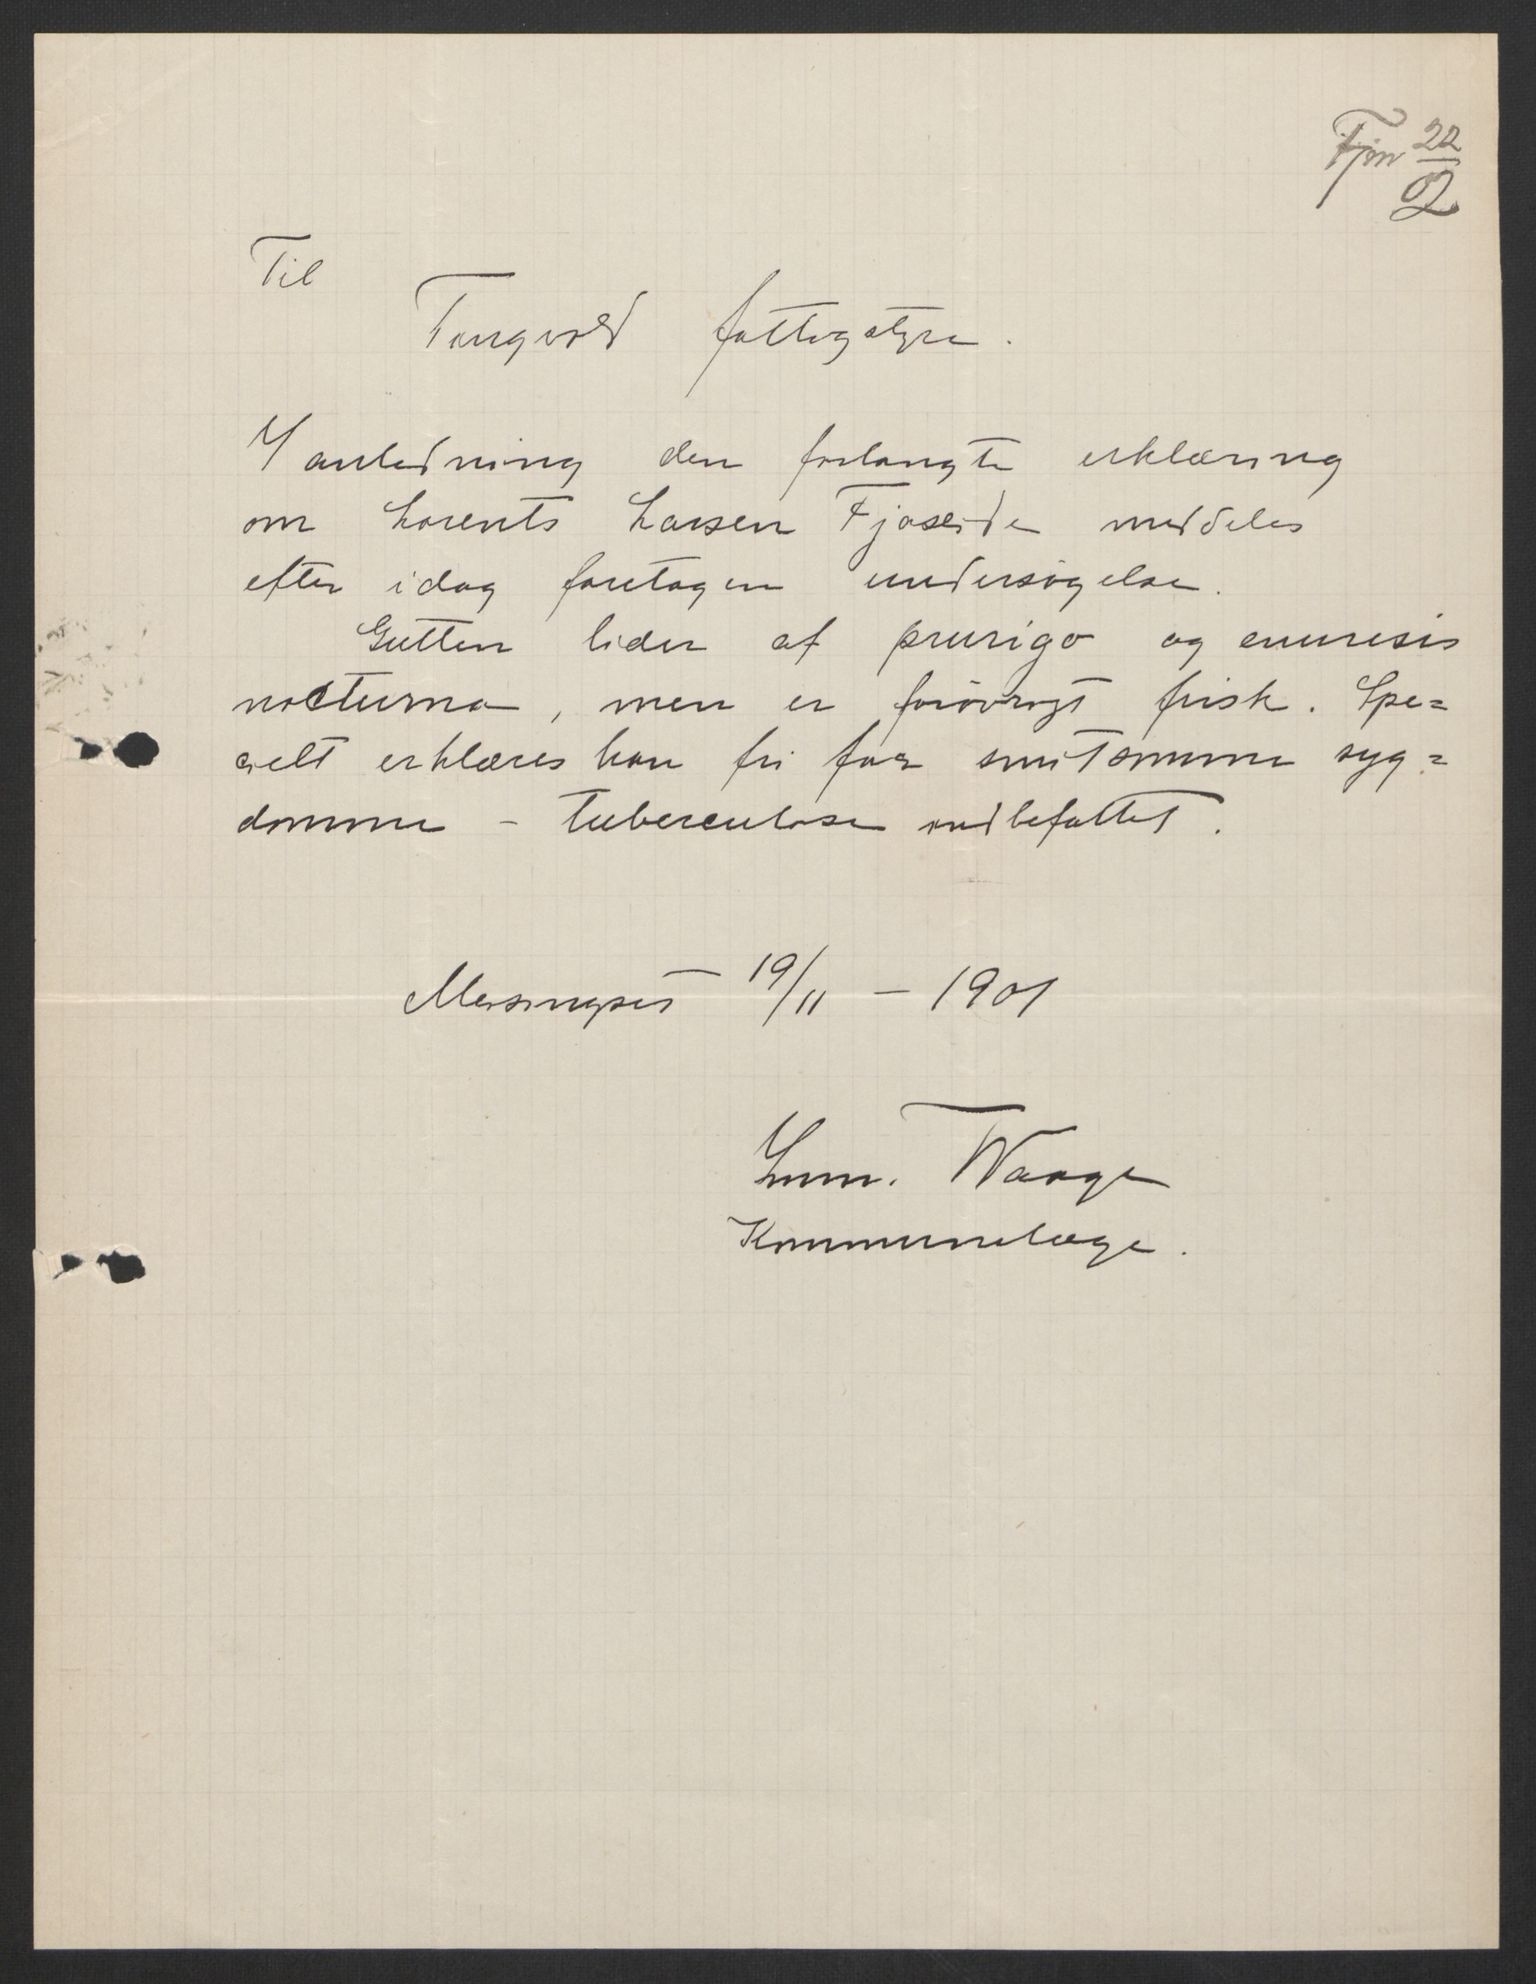 Fjm 22/2
Til
Tingvold fattigstyre.
I anledning den forlangte erklæring
om Lorents Larsen Fjøseide meddeles
efter idag foretagen undersøgelse.
Gutten lider af prurigo og enuresis
nocturna, men er forøvrigt frisk. Spe=
cielt erklæres han fri for smitsomme syg=
domme - tuberculose indbefattet.
19/11 - 1901
Waage
Kommunelæge.